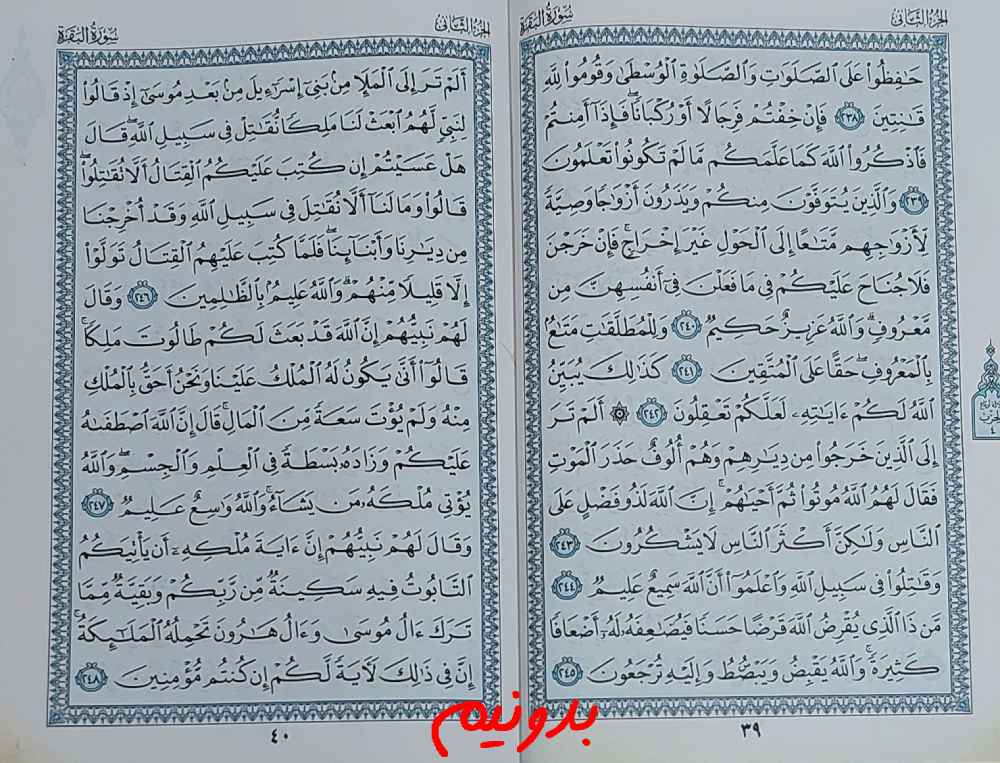 الجزء الثاني
سورة البقرة
حَـٰفِظُوا۟ عَلَى ٱلصَّلَوَٰتِ وَٱلصَّلَوٰةِ ٱلْوُسْطَىٰ وَقُومُوا۟ لِلَّهِ
قَـٰنِتِينَ ٢٣٨ فَإِنْ خِفْتُمْ فَرِجَالًا أَوْ رُكْبَانًا ۖ فَإِذَآ أَمِنتُمْ
فَٱذْكُرُوا۟ ٱللَّهَ كَمَا عَلَّمَكُم مَّا لَمْ تَكُونُوا۟ تَعْلَمُونَ
٢٣٩ وَٱلَّذِينَ يُتَوَفَّوْنَ مِنكُمْ وَيَذَرُونَ أَزْوَٰجًا وَصِيَّةً
لِّأَزْوَٰجِهِم مَّتَـٰعًا إِلَى ٱلْحَوْلِ غَيْرَ إِخْرَاجٍ ۚ فَإِنْ خَرَجْنَ
فَلَا جُنَاحَ عَلَيْكُمْ فِى مَا فَعَلْنَ فِىٓ أَنفُسِهِنَّ مِن
مَّعْرُوفٍ ۗ وَٱللَّهُ عَزِيزٌ حَكِيمٌ ٢٤٠ وَلِلْمُطَلَّقَـٰتِ مَتَـٰعٌۢ
بِٱلْمَعْرُوفِ ۖ حَقًّا عَلَى ٱلْمُتَّقِينَ ٢٤١ كَذَٰلِكَ يُبَيِّنُ
ٱللَّهُ لَكُمْ ءَايَـٰتِهِۦ لَعَلَّكُمْ تَعْقِلُونَ ٢٤٢ ۞ أَلَمْ تَرَ
إِلَى ٱلَّذِينَ خَرَجُوا۟ مِن دِيَـٰرِهِمْ وَهُمْ أُلُوفٌ حَذَرَ ٱلْمَوْتِ
فَقَالَ لَهُمُ ٱللَّهُ مُوتُوا۟ ثُمَّ أَحْيَـٰهُمْ ۚ إِنَّ ٱللَّهَ لَذُو فَضْلٍ عَلَى
ٱلنَّاسِ وَلَـٰكِنَّ أَكْثَرَ ٱلنَّاسِ لَا يَشْكُرُونَ ٢٤٣
وَقَـٰتِلُوا۟ فِى سَبِيلِ ٱللَّهِ وَٱعْلَمُوٓا۟ أَنَّ ٱللَّهَ سَمِيعٌ عَلِيمٌ ٢٤٤
مَّن ذَا ٱلَّذِى يُقْرِضُ ٱللَّهَ قَرْضًا حَسَنًا فَيُضَـٰعِفَهُۥ لَهُۥٓ أَضْعَافًا
كَثِيرَةً ۚ وَٱللَّهُ يَقْبِضُ وَيَبْصُۜطُ وَإِلَيْهِ تُرْجَعُونَ ٢٤٥
٣٩
الجزء الثاني
سورة البقرة
أَلَمْ تَرَ إِلَى ٱلْمَلَإِ مِنۢ بَنِىٓ إِسْرَٰٓءِيلَ مِنۢ بَعْدِ مُوسَىٰٓ إِذْ قَالُوا۟
لِنَبِىٍّ لَّهُمُ ٱبْعَثْ لَنَا مَلِكًا نُّقَـٰتِلْ فِى سَبِيلِ ٱللَّهِ ۖ قَالَ
هَلْ عَسَيْتُمْ إِن كُتِبَ عَلَيْكُمُ ٱلْقِتَالُ أَلَّا تُقَـٰتِلُوا۟ ۖ
قَالُوا۟ وَمَا لَنَآ أَلَّا نُقَـٰتِلَ فِى سَبِيلِ ٱللَّهِ وَقَدْ أُخْرِجْنَا
مِن دِيَـٰرِنَا وَأَبْنَآئِنَا ۖ فَلَمَّا كُتِبَ عَلَيْهِمُ ٱلْقِتَالُ تَوَلَّوْا۟
إِلَّا قَلِيلًا مِّنْهُمْ ۗ وَٱللَّهُ عَلِيمٌۢ بِٱلظَّـٰلِمِينَ ٢٤٦ وَقَالَ
لَهُمْ نَبِيُّهُمْ إِنَّ ٱللَّهَ قَدْ بَعَثَ لَكُمْ طَالُوتَ مَلِكًا ۚ
قَالُوٓا۟ أَنَّىٰ يَكُونُ لَهُ ٱلْمُلْكُ عَلَيْنَا وَنَحْنُ أَحَقُّ بِٱلْمُلْكِ
مِنْهُ وَلَمْ يُؤْتَ سَعَةً مِّنَ ٱلْمَالِ ۚ قَالَ إِنَّ ٱللَّهَ ٱصْطَفَىٰهُ
عَلَيْكُمْ وَزَادَهُۥ بَسْطَةً فِى ٱلْعِلْمِ وَٱلْجِسْمِ ۖ وَٱللَّهُ
يُؤْتِى مُلْكَهُۥ مَن يَشَآءُ ۚ وَٱللَّهُ وَٰسِعٌ عَلِيمٌ ٢٤٧
وَقَالَ لَهُمْ نَبِيُّهُمْ إِنَّ ءَايَةَ مُلْكِهِۦٓ أَن يَأْتِيَكُمُ
ٱلتَّابُوتُ فِيهِ سَكِينَةٌ مِّن رَّبِّكُمْ وَبَقِيَّةٌ مِّمَّا
تَرَكَ ءَالُ مُوسَىٰ وَءَالُ هَـٰرُونَ تَحْمِلُهُ ٱلْمَلَـٰٓئِكَةُ ۚ
إِنَّ فِى ذَٰلِكَ لَـَٔايَةً لَّكُمْ إِن كُنتُم مُّؤْمِنِينَ ٢٤٨
٤٠
بدونیم